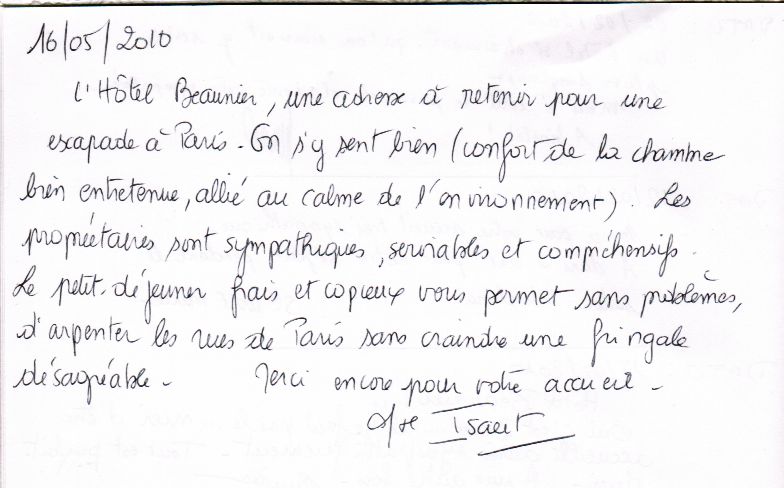 16/05/2010
L'Hôtel Beaunier, une adresse à retenir pour une
escapade à Paris. On s'y sent bien (confort de la chambre
bien entretenue, allié au calme de l'environnement). Les
propriétaires sont sympathiques, serviables et compréhensifs.
Le petit-déjeuner frais et copieux vous permet sans problèmes,
d'arpenter les rues de Paris sans craindre une fringale
désagréable - Merci encore pour votre accueil -